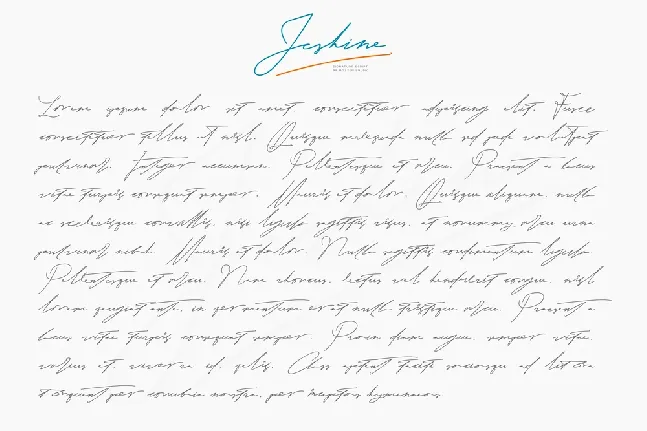 Jeshine
SIGNATURE SCRIPT
Lorem ipsum dolor sit amet consectetuer adipiscing elit. Fusce
consectetuer tellus et nisl. Quisque malesuada nulla sed pede volutpat
pulvinar. Integer accumsan. Pellentesque et arcu. Praesent a lacus
vitae turpis consequat semper. Mauris et dolor. Quisque aliquam, nulla
ac scelerisque convallis, nisi ligula sagittis risus, at nonummy arcu urna
pulvinar nibh. Mauris et dolor. Nulla sagittis condimentum ligula.
Pellentesque et arcu. Nam rhoncus, lectus vel hendrerit congue, nisl
lorem feugiat ante, in fermentum erat nulla tristique arcu. Praesent a
lacus vitae turpis consequat semper. Proin diam augue, semper vitae,
varius et, viverra id, felis. Class aptent taciti sociosqu ad litora
torquent per conubia nostra, per inceptos hymenaeos.